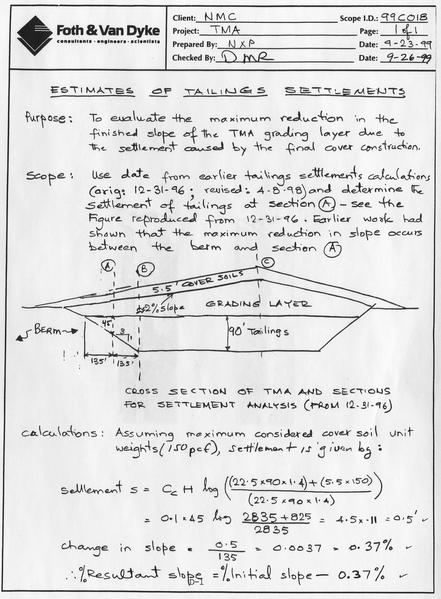 Foth & Van Dyke
consultants - engineers - scientists
Client: NMC Scope I.D.: 99C018
Project: TMA Page: 1 of 1
Prepared By: NXP Date: 9-23-99
Checked By: DMR Date: 9-26-99
ESTIMATES OF TAILINGS SETTLEMENTS
Purpose: To evaluate the maximum reduction in the
finished slope of the TMA grading layer due to
the settlement caused by the final cover construction.
Scope: Use data from earlier tailings settlements calculations
(orig: 12-31-96; revised: 4-8-98) and determine the
settlement of tailings at section Ⓐ - see the
Figure reproduced from 12-31-96. Earlier work had
shown that the maximum reduction in slope occurs
between the berm and section Ⓐ
A B C
5.5' COVER SOILS
≈2% slope GRADING LAYER
BERM 45' 3 1 90' Tailings
135' 135'
CROSS SECTION OF TMA AND SECTIONS
FOR SETTLEMENT ANALYSIS (FROM 12-31-96)
Calculations: Assuming maximum considered cover soil unit
weights (150 pcf), settlement is given by:
settlement s = Cc H log ((22.5 × 90 × 1.4) + (5.5 × 150) / (22.5 × 90 × 1.4))
= 0.1 × 45 log 2835 + 825 / 2835 = 4.5 × .11 = 0.5' ✓
change in slope = 0.5 / 135 = 0.0037 = 0.37% ✓
∴ % Resultant slope = % Initial slope - 0.37% ✓
D-1